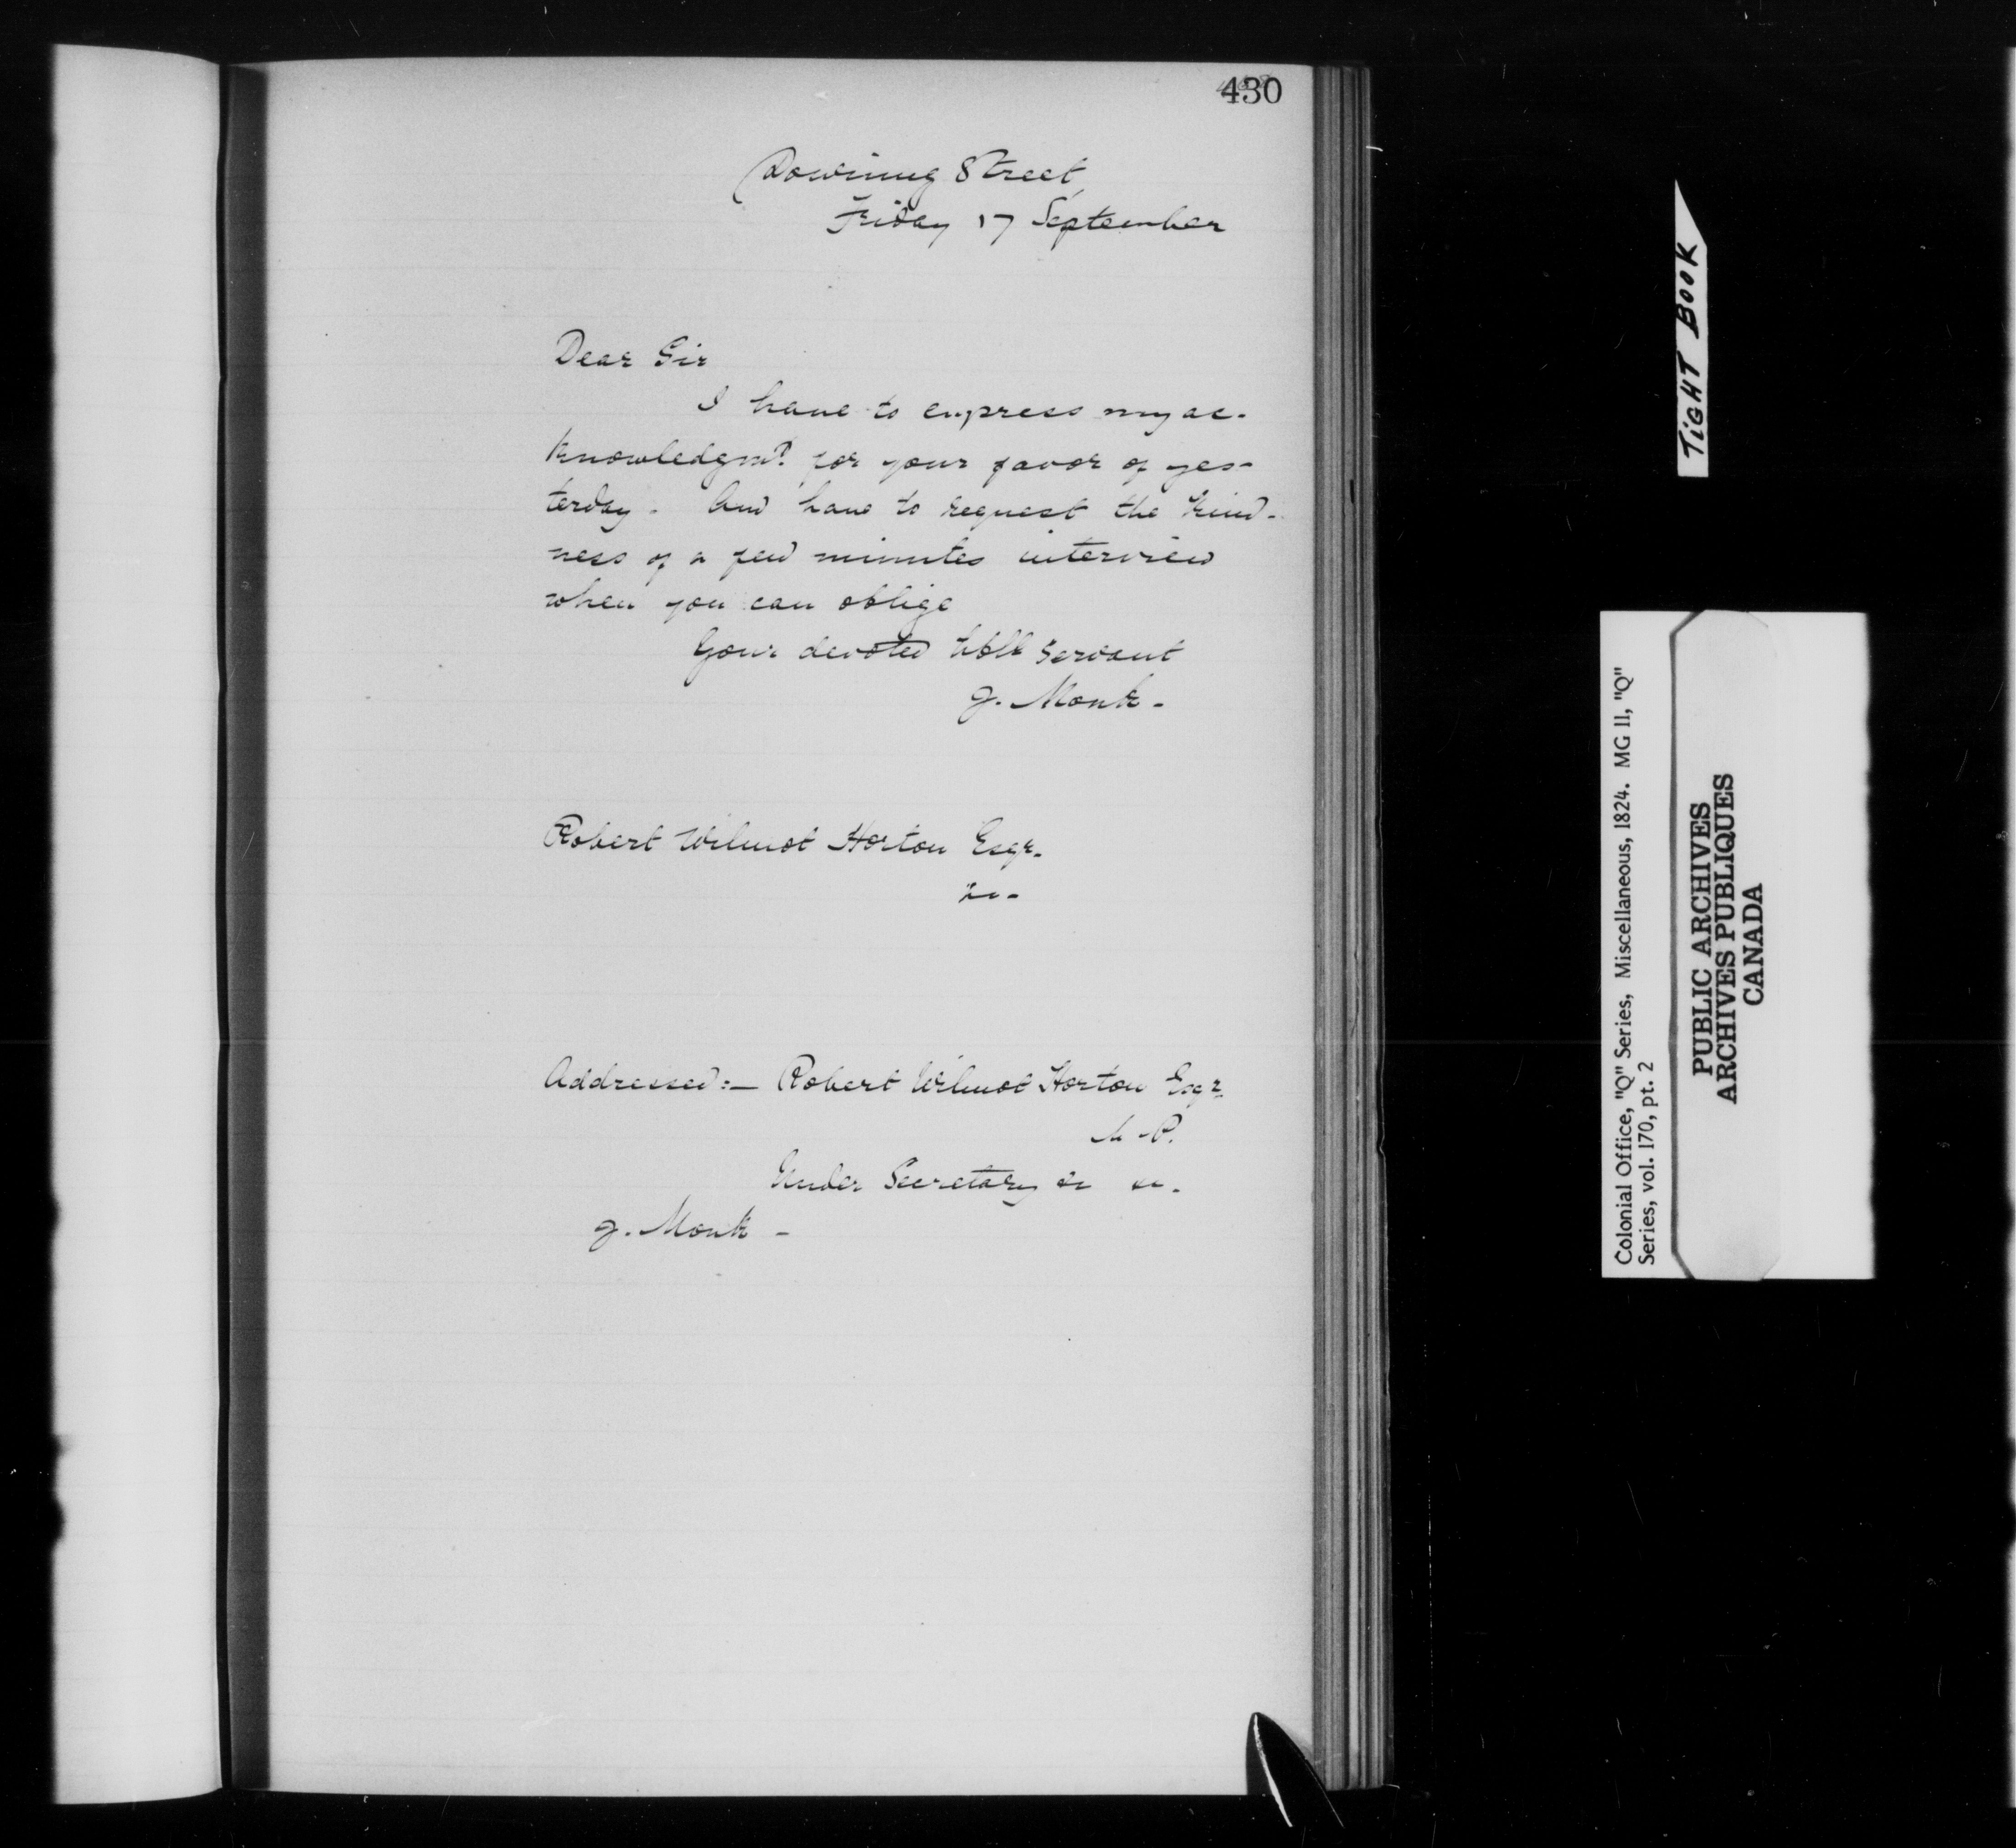 430
Downing Street,
Friday 17 September
Dear Sir
I have to express my ac-
knowledgmt. for your favor of yes-
terday. And have to request the kind-
ness of a few minutes interview
when you can oblige
Your devoted hble servant
J. Monk.
Robert Wilmot Horton Esqr.
&c.
Addressed:— Robert Wilmot Horton Esqr.
M. P.
Under Secretary &c &c.
J. Monk —
TIGHT BOOK
Colonial Office, "Q" Series, Miscellaneous, 1824. MG 11, "Q"
Series, vol. 170, pt. 2
PUBLIC ARCHIVES
ARCHIVES PUBLIQUES
CANADA